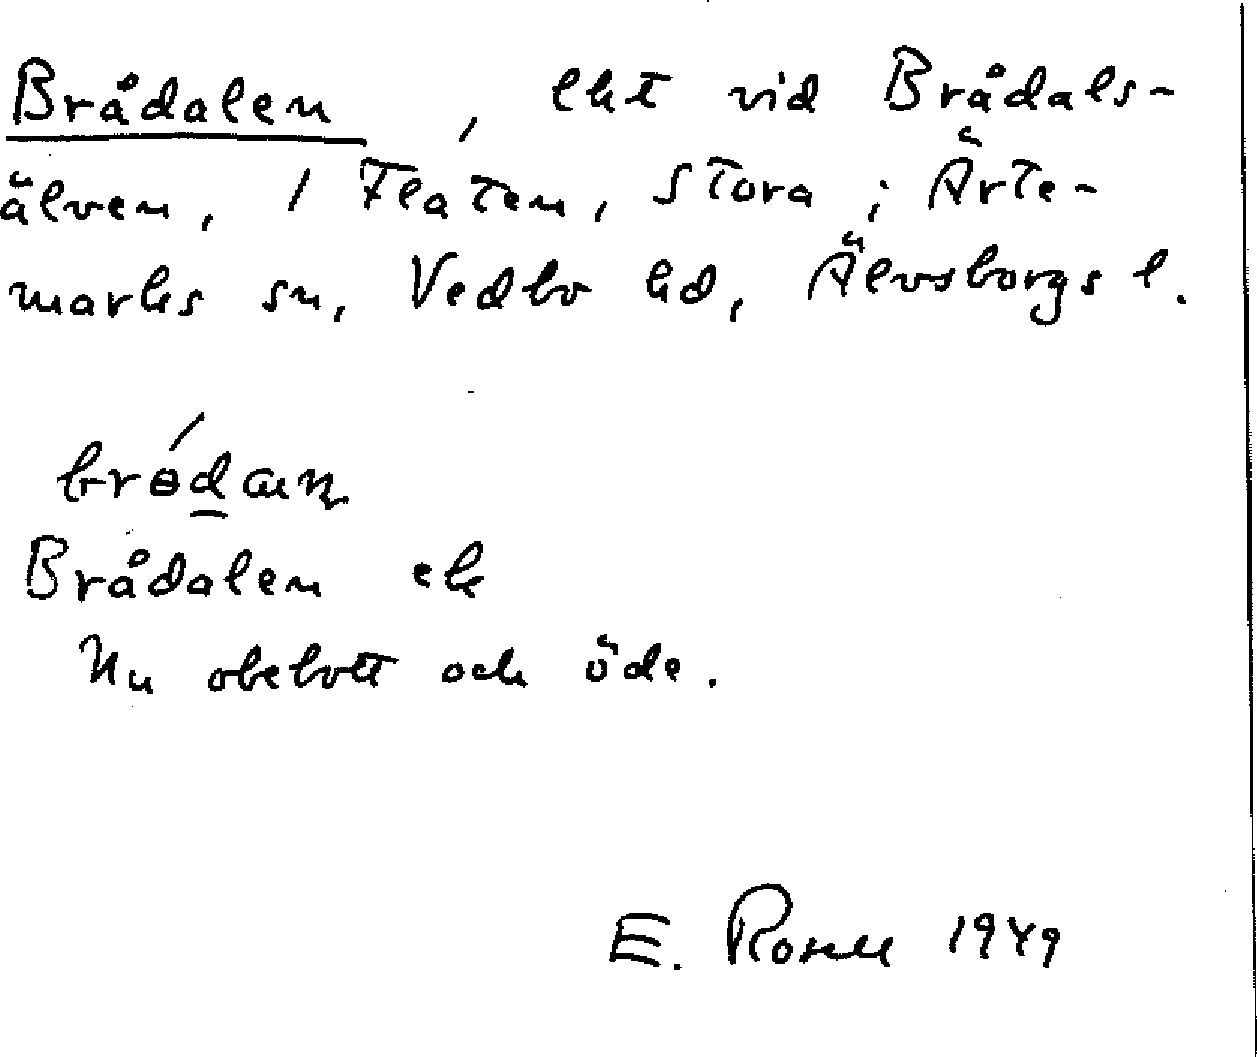 Brådalen, ekt vid Brådals-
älven, 1 Flaten, Stora; Ärte-
marks sn, Vedbo hd, Älvsborgs l.
Brådalen ek
Nu obebott och öde.
E. 1949